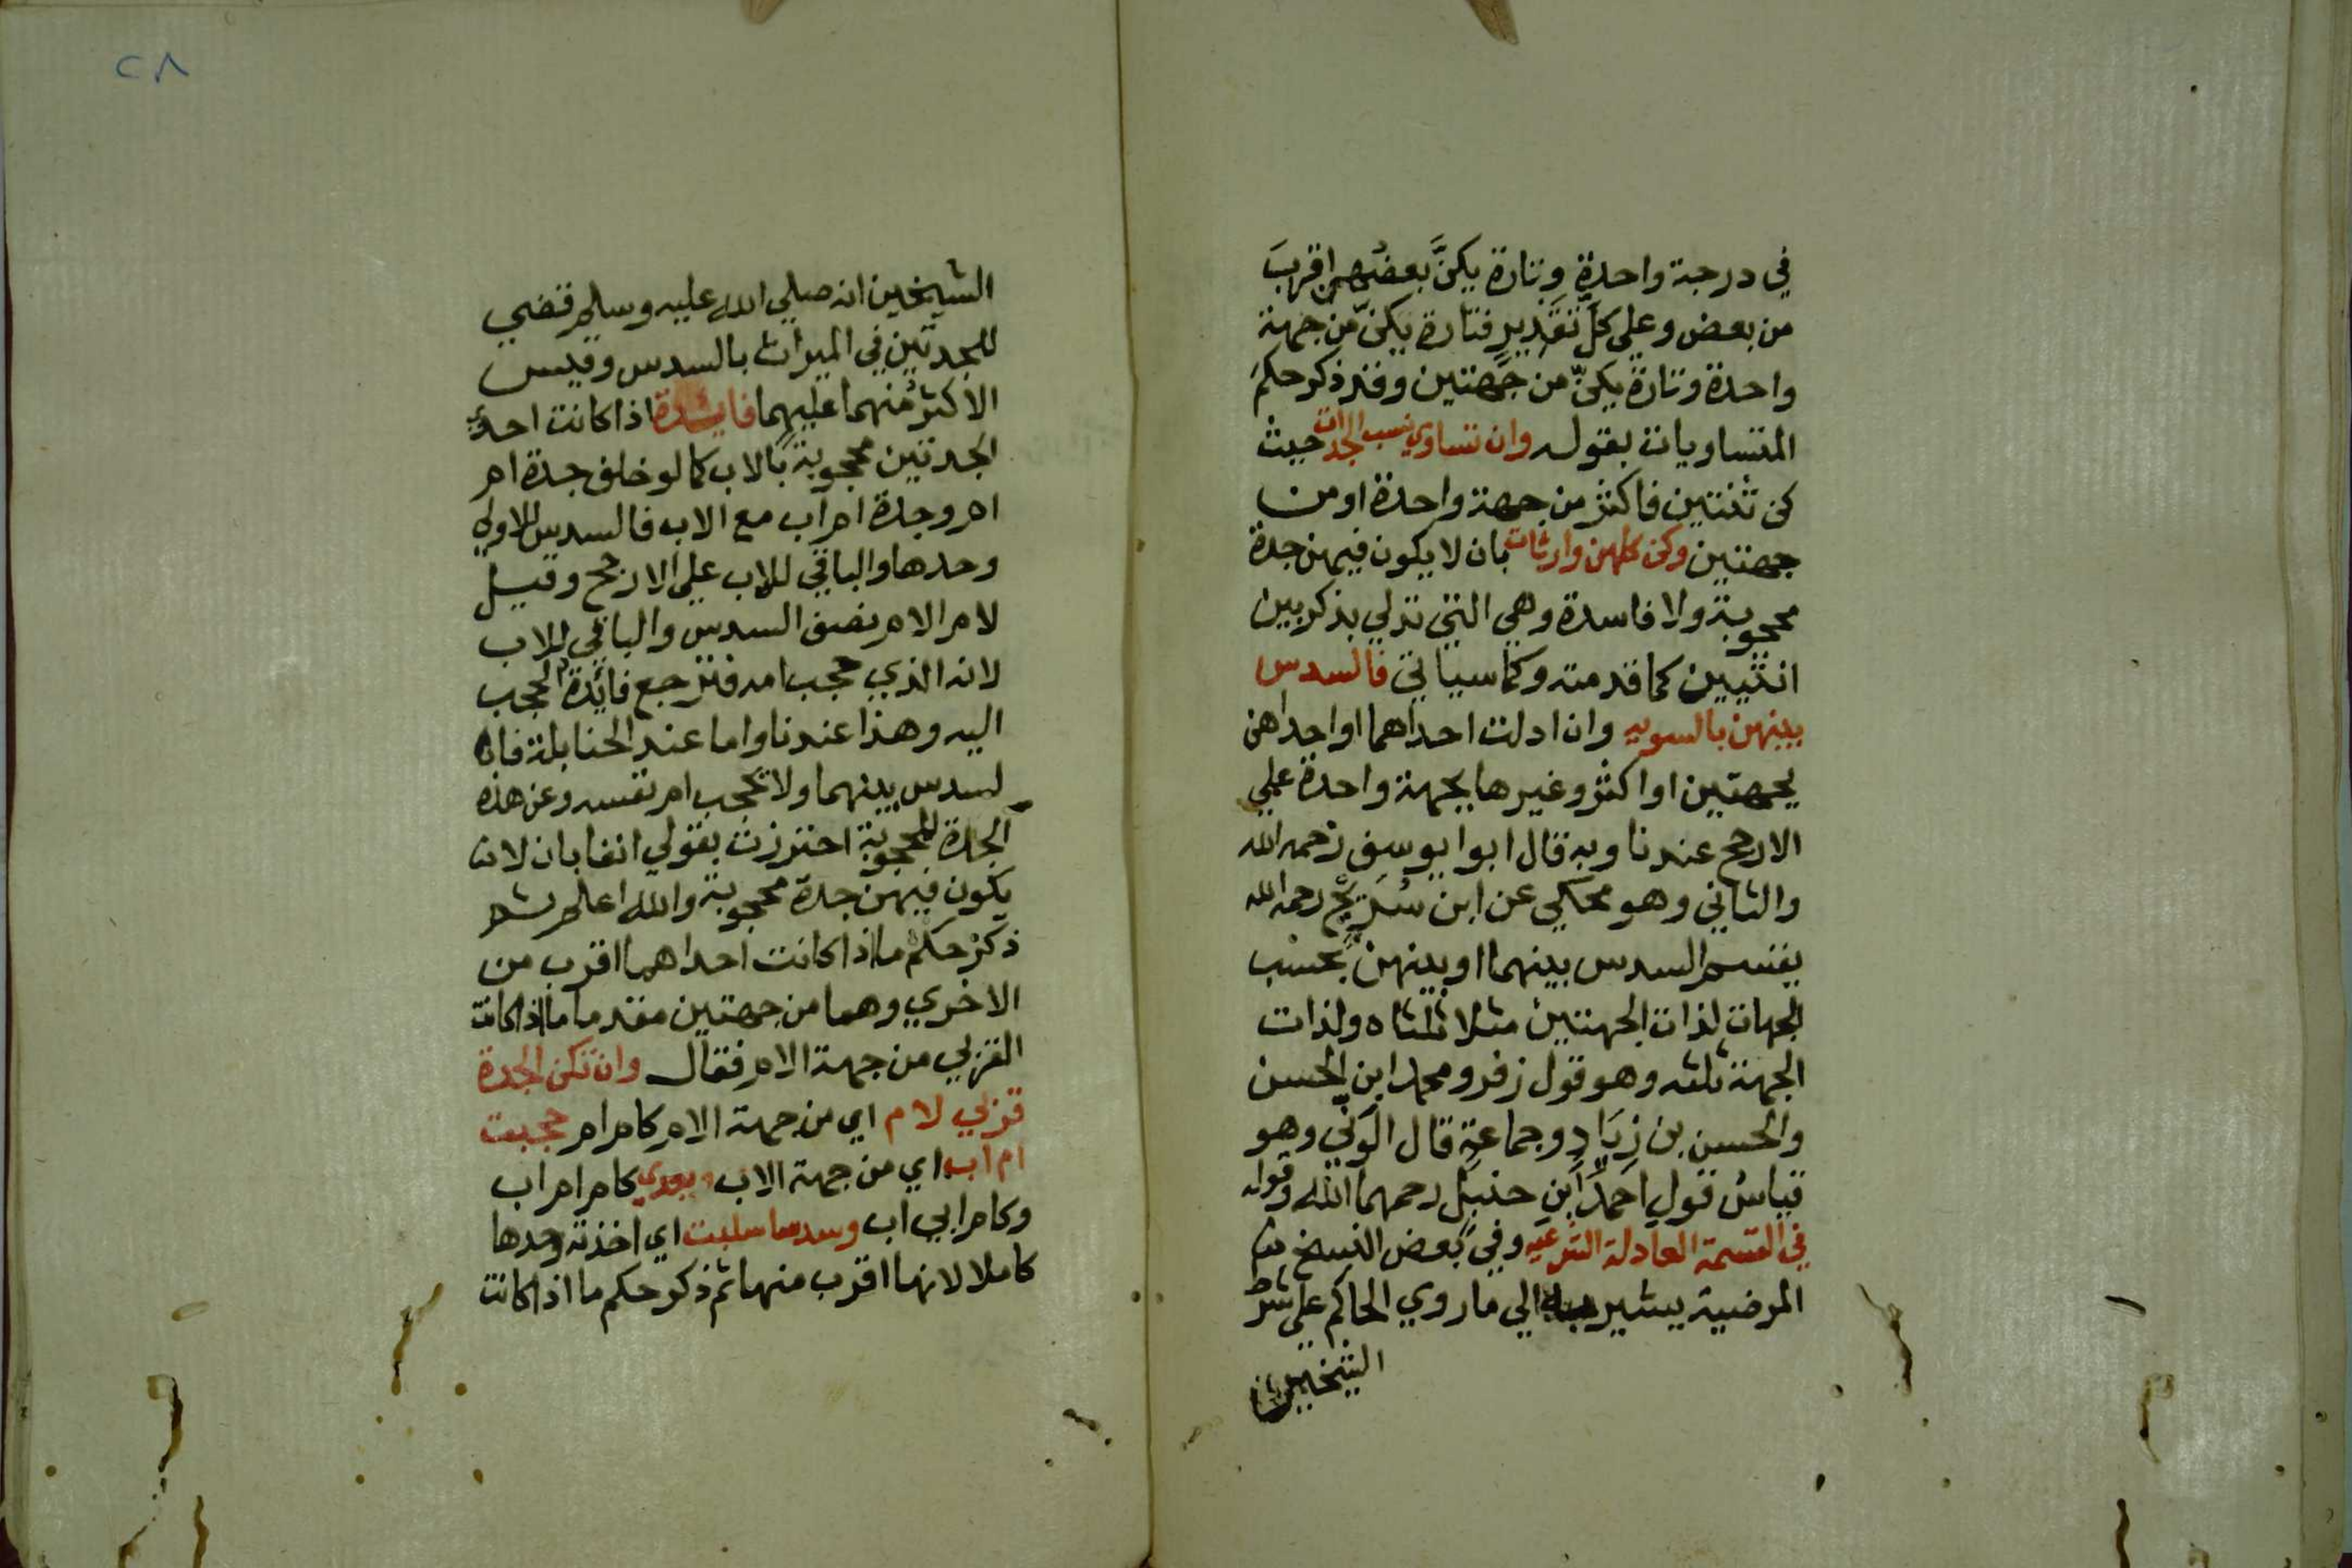 في درجة واحدة وتارة يكنَّ بعضهن اقربَ
من بعض وعلى كل تقدير فتارة يكنّ من جهة
واحدة وتارة يكنّ من جهتين وقد ذكر حكم
المتساويات بقوله وان تساوي نسب الجدات حيث
كن ثنتين فاكثر من جهة واحدة او من
جهتين وكن كلهن وارثات بان لا يكون فيهن جدة
محجوبة ولا فاسدة وهي التي تدلي بذكر بين
انثيين كما قدمته وكما سياتي فالسدس
بينهن بالسويه وان ادلت احداهما او احداهن
بجهتين او اكثر وغيرها بجهة واحدة علي
الارجح عندنا وبه قال ابوا يوسف رحمه الله
والثاني وهو محكي عن ابن سُرَيْج رحمه الله
يقسم السدس بينهما او بينهن بحسَب
الجهات لذات الجهتين مثلا ثلثاه ولذات
الجهة ثلثه وهو قول زفر ومحمد ابن الحسن
والحسن بن زيَادٍ وجماعة قال الوَنّي وهو
قياسُ قول احمدَ ابن حنبل رحمهما الله وقوله
في القسمة العادلة الشرعيه وفي بعض النسخ
المرضية يشير به الي ما روي الحاكم على شرط
الشيخين
٢٨
الشيخين انه صلي الله عليه وسلم قضي
للجدتين في الميراث بالسدس وقيس
الاكثر منهما عليهما فايدة اذا كانت احدي
الجدتين محجوبة بالاب كما لو خلف جدة ام
ام وجدة ام اب مع الاب فالسدس للاولي
وحدها والباقي للاب على الارجح وقيل
لام الام نصف السدس والباقي للاب
لانه الذي حجب امه فترجع فائدة الحجب
اليه وهذا عندنا واما عند الحنابلة فان
لسدس بينهما ولا تحجب ام نفسه وعن هذه
الجدة المحجوبة احترزت بقولي انفا بان لا
يكون فيهن جدة محجوبة والله اعلم ثم
ذكر حكم ما اذا كانت احداهما اقرب من
الاخري وهما من جهتين مقدما ما اذا كانت
القربي من جهة الام فقال وان تكن الجدة
قربي لام اي من جهة الام كام ام حجبت
ام اب اي من جهة الاب بعدي كام ام اب
وكام ابي اب وسدسا سلبت اي اخذته وحدها
كاملا لانها اقرب منها ثم ذكر حكم ما اذا كانت